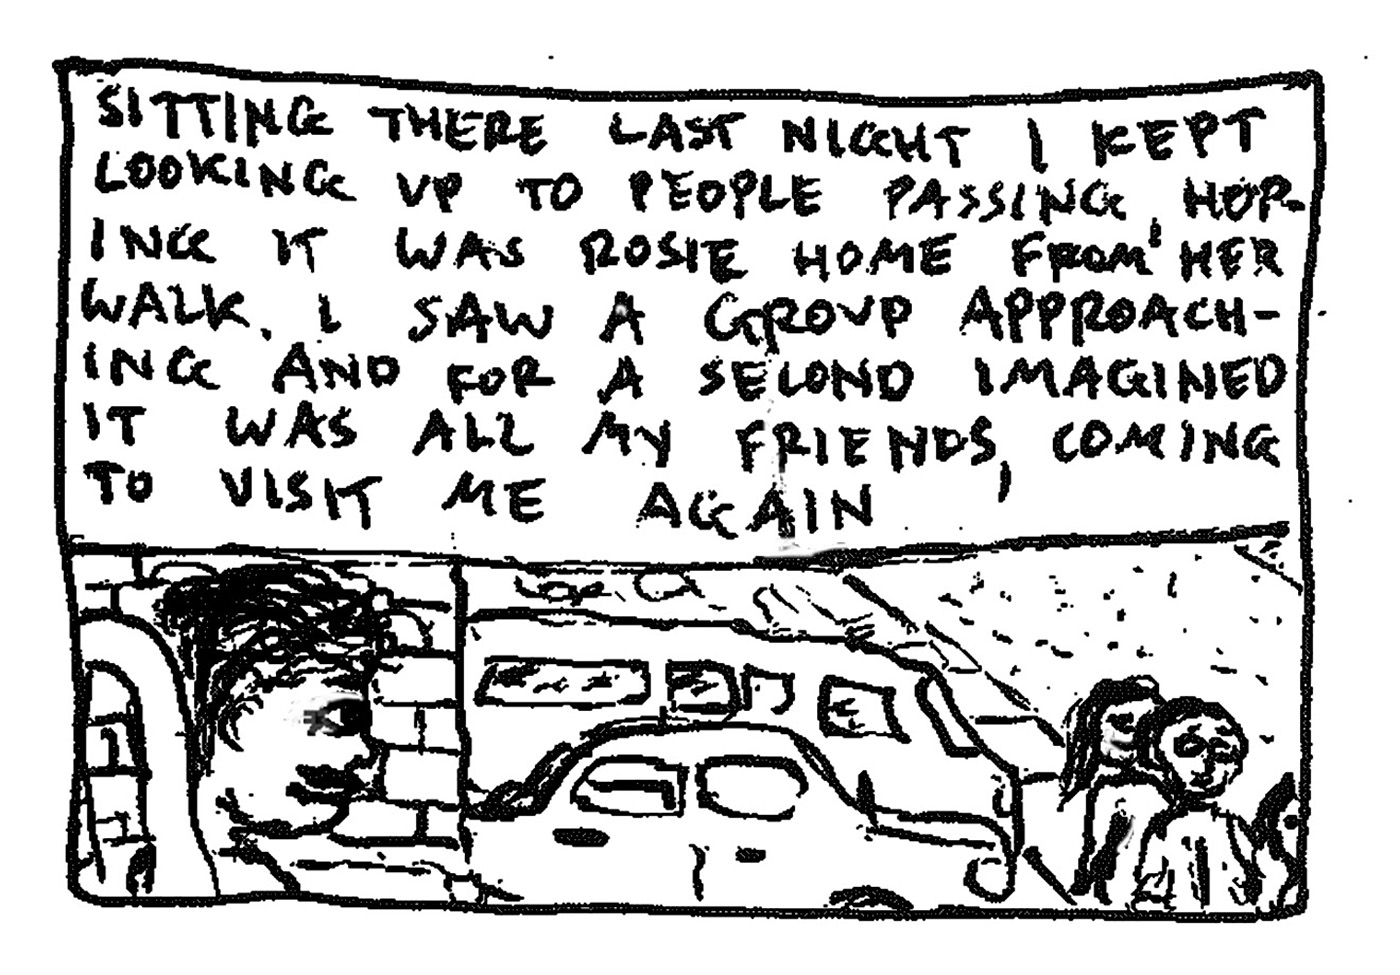 SITTING THERE LAST NIGHT I KEPT
LOOKING UP TO PEOPLE PASSING, HOP-
ING IT WAS ROSIE HOME FROM HER
WALK. I SAW A GROUP APPROACH-
ING AND FOR A SECOND IMAGINED
IT WAS ALL MY FRIENDS, COMING
TO VISIT ME AGAIN